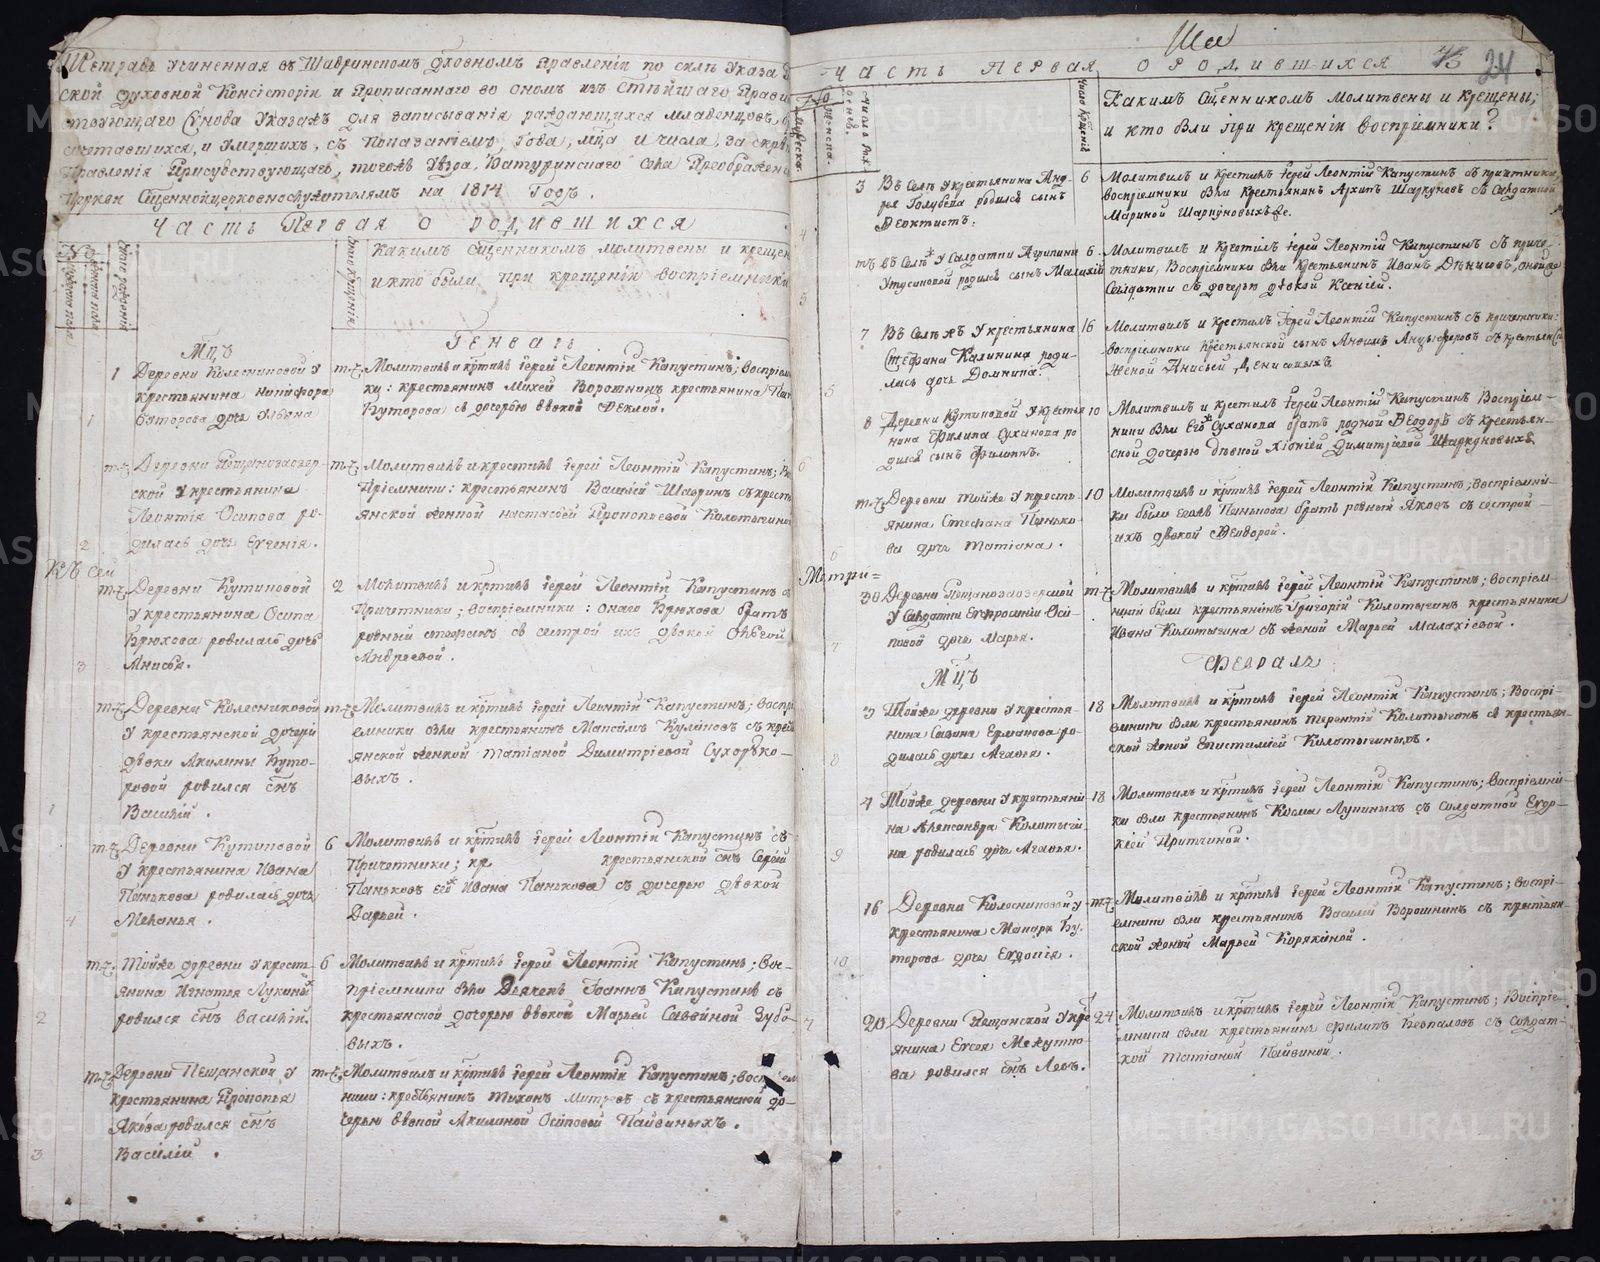 Тетрадь учиненная въ Шавринскомъ духовномъ правленіи по силѣ указа
ской духовной Консисторіи и прописаннаго во ономъ изъ Стѣйшаго Прави
тѣствующаго Сѵнода указахъ для записыванія раждающихся младенцовъ,
сочетавшихся, и умершихъ, съ показаніемъ, года, мца и числа, за скрѣ
Правленія Присудствующаго, тогожъ уѣзда, Батуринскаго села Преображен
Церкви Сщеннойцерковнослужителямъ на 1814 Годъ.
Часть Первая о родившихся
Число рожденій
Число крещенія
Какимъ Сщенникомъ молитвены и крещен
и кто были при крещеніи воспріемники
Генварь
Мцъ
1 Деревни Колесниковой у
крестьянина Никифора
Буторова дчь Ульяна
1
т-ж Молитвилъ и кртилъ іерей Леонтій Капустинъ; воспріем
ки: крестьянинъ Михей Ворошнинъ крестьянина
Буторова съ дочерью дѣвкой Ѳеклой.
т-ж Деревни
ской у крестьянина
Леонтія Осипова ро-
дилась дочь Евгенія.
2
т-ж Молитвилъ и крстилъ іерей Леонтій Капустинъ; Во
Пріемники: крестьянинъ Василей Шавринъ съ кресть
янской женкой Настасьей Прокопьевой Колотыгино
т-ж Деревни Кутиковой
у крестьянина Осипа
Брюхова родилась дчь
Анисья.
3
2 Молитвилъ и кртилъ іерей Леонтій Капустинъ с
Причетники; воспріемники: онаго Брюхова братъ
родный стефанъ съ сестрой ихъ дѣвкой
Андреевой.
т-ж Деревни Колесниковой
у крестьянской дочери
дѣвки Акилины Буто-
ровой родился снъ
Василій.
1
т-ж Молитвилъ и кртилъ іерей Леонтій Капустинъ; воспрі
емники бли крестьянинъ Максимъ Куликовъ съ крест
янской женкой Татіаной Димитріевой Сухоруко-
выхъ.
т-ж Деревни Кутиковой
у крестьянина Ивана
Панькова родилась дчь
Меланья.
4
6 Молитвилъ и кртилъ іерей Леонтій Капустинъ съ
Причетники; кр крестьянской снъ Сергій
Паньковъ его Ивана Панькова съ дочерью дѣвкой
Дарьей.
т-ж Тойже деревни у крест-
янина Игнатья Лукина
родился снъ Василій.
2
6 Молитвилъ и кртилъ іерей Леонтій Капустинъ; вос-
пріемники бли Дьячекъ Іоаннъ Капустинъ съ
крестьянской дочерью дѣвкой Марьей Саввиной Зубо-
выхъ.
т-ж Деревни Пещанской у
крестьянина Прокопья
Якова родился снъ
Василій.
3
т-ж Молитвилъ и кртилъ іерей Леонтій Капустинъ; воспріем
ники: крестьянинъ Тихонъ съ крестьянской до-
черью дѣвкой Акилиной Осиповой Пайвиныхъ.
Часть Первая о родившихся 24
Число крещеній
Какимъ Сщенникомъ молитвены и крещены;
и кто бли при крещеніи воспріемники?
3 Въ Селѣ у крестьянина Анд
рея Голубева родился сынъ
Ѳеоктистъ.
4
6 Молитвилъ и крестилъ іерей Леонтій Капустинъ съ причетники
воспріемники бли крестьянинъ Архипъ Шаркуновъ съ Салдаткой
Мариной
тъ въ Селѣ у Салдатки Агрипины
Утусиковой родился сынъ Малахій
5
6 Молитвилъ и крестилъ іерей Леонтій Капустинъ съ приче-
тники, Воспріемники бли крестьянинъ Иванъ Денисовъ, оной же
Солдатки съ дочерью дѣвкой
7 Въ Селѣ жъ у крестьянина
Стефана Калинина роди-
лась дчь Домника.
5
16 Молитвилъ и крестилъ іерей Леонтій Капустинъ съ причетники:
воспріемники крестьянской сынъ съ крестьянс
женой Анисьей Денисовыхъ
8 Деревни Кутиковой у крестья
нина Филипа Суханова ро
дился сынъ Филипъ.
6
10 Молитвилъ и крестилъ іерей Леонтій Капустинъ Воспріем-
ники бли его Суханова братъ родной Ѳеодоръ съ крестьян-
ской дочерью дѣвкой Димитріевой
т-ж Деревни тойже у кресть-
янина Стефана Панько-
ва дчь Татіана.
6
10 Молитвилъ и кртилъ іерей Леонтій Капустинъ; воспріемни-
ки были егожъ Панькова братъ родный Яковъ съ сестрой
ихъ дѣвкой Ѳеодорой.
Метри=
30 Деревни Пещанозаозерской
у Салдатки Евфросиніи Оси-
повой дчь Марья.
7
т-ж Молитвилъ и кртилъ іерей Леонтій Капустинъ; воспріем-
ники были крестьянинъ Григорій Колотыгинъ крестьянина
Ивана Колотыгина съ женой Марьей Малахіевой.
Февраль
Мцъ
3 Тойже деревни у крестья-
нина Савина Ермакова ро-
дилась дчь Агафья.
8
18 Молитвилъ и кртилъ іерей Леонтій Капустинъ; воспрі-
емники бли крестьянинъ Терентій Колотыгинъ съ крестьян-
ской женой Епистиміей Колотыгиныхъ.
4 Тойже деревни у крестьяни-
на Александра Колотыги-
на родилась дчь Агафья.
9
18 Молитвилъ и кртилъ іерей Леонтій Капустинъ; воспріемни-
ки бли крестьянинъ Косма Лупиныхъ съ солдаткой Евдо-
кіей
16 Деревни Колесниковой у
крестьянина Макара Бу-
торова дчь Евдокія.
10
т-ж Молитвилъ и кртилъ іерей Леонтій Капустинъ; воспрі-
емники бли крестьянинъ Василій Ворошнинъ съ крестьян-
ской женой Марьей Корякиной.
20 Деревни Пещанской у кре
янина Евсея
ва родился снъ Левъ.
4
24 Молитвилъ и кртилъ іерей Леонтій Капустинъ; Воспріе-
мники бли крестьянинъ Филипъ Безпаловъ съ солдат-
кой Татіаной Пайвиной.
METRIKI.GASO-URAL.RU